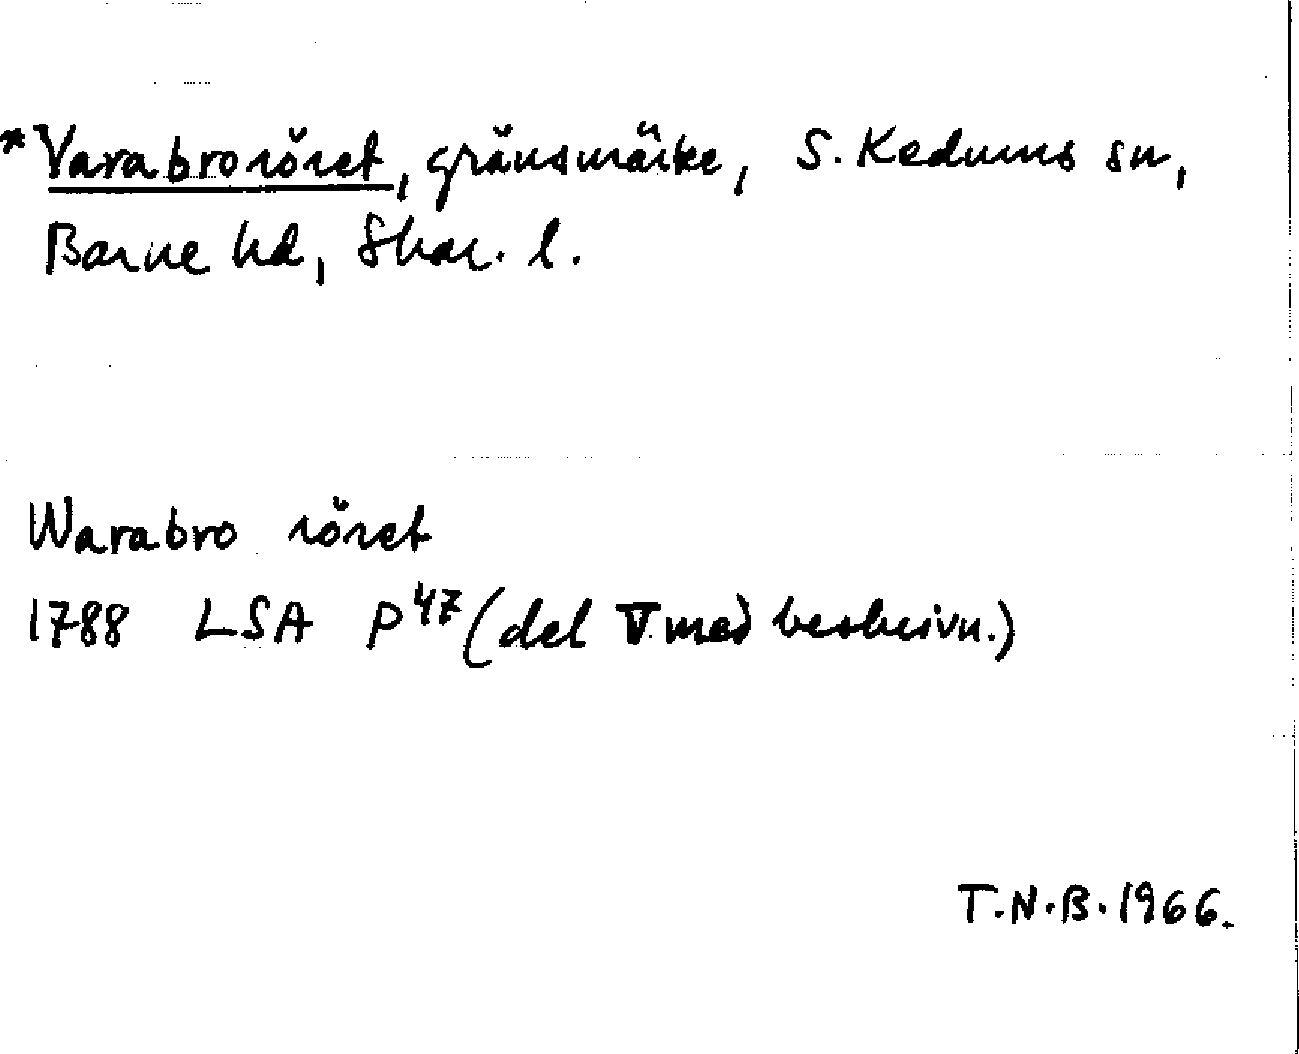 *Vararabroröret, gränsmärke, S. Kedums sn,
Barne hd, Skar. l.
Warabro röret
1788 LSA P47 (del V med beskrivn.)
T.N.B. 1966.